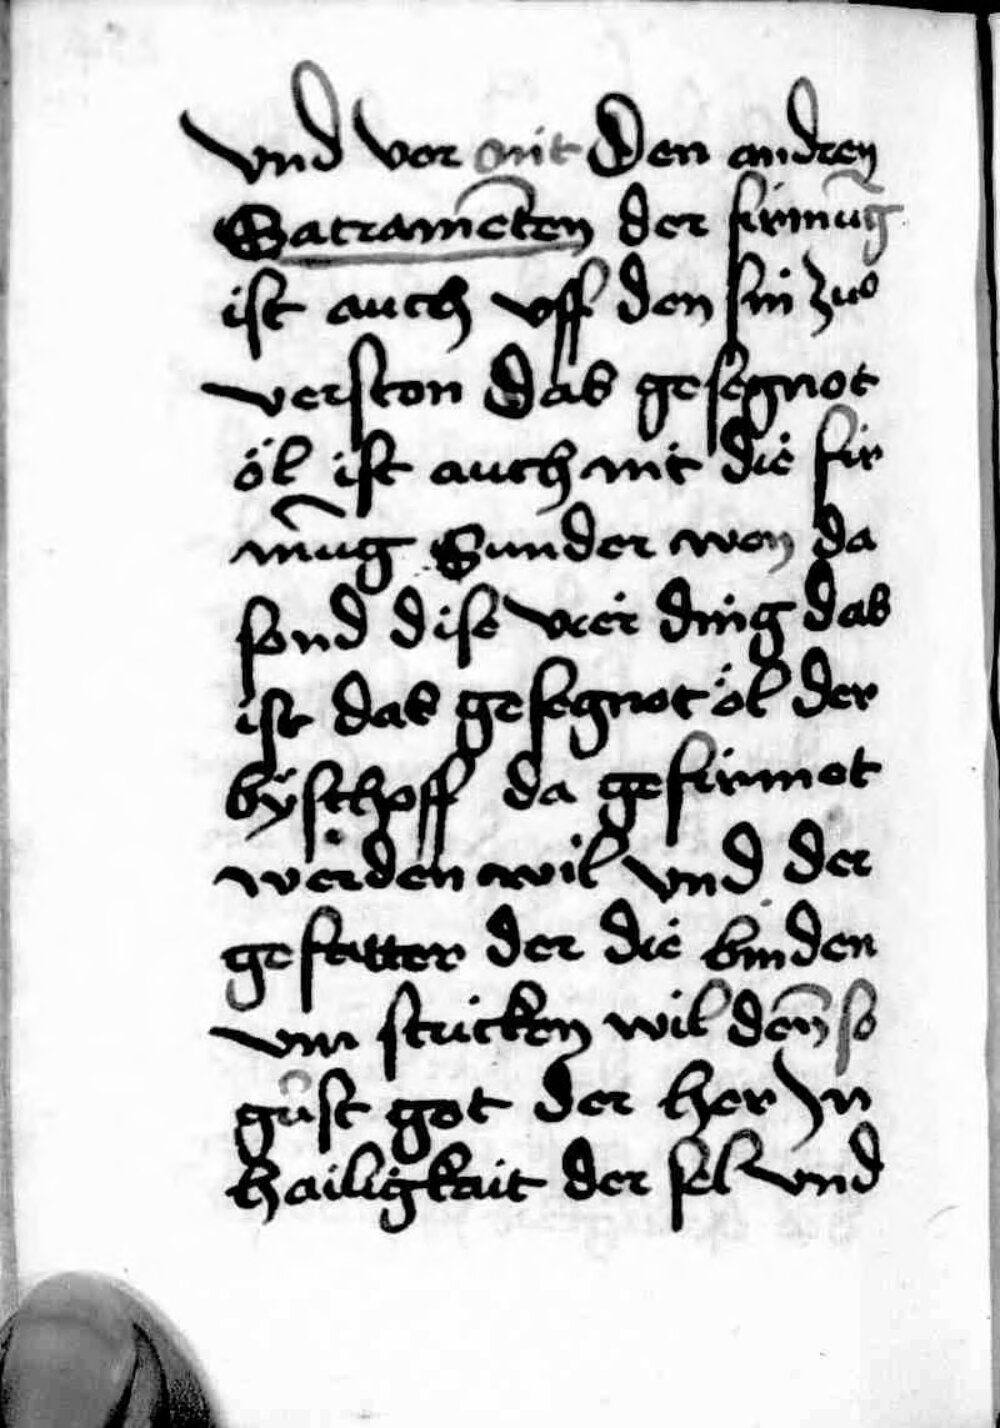 vnd vor mit Den andren
Sacramēten der firmūg
ist auch vff den sin zuo
verston das gesegnot
öl ist auch nit die fir
mūg Sunder won da
sond dise vier ding das
ist das gesegnot öl der
byschoff da gefirmot
werden wil vnd der
gefatter der die binden
vm stricken wil den̄ so
gůst got der her In
hailigkait der sel vnd